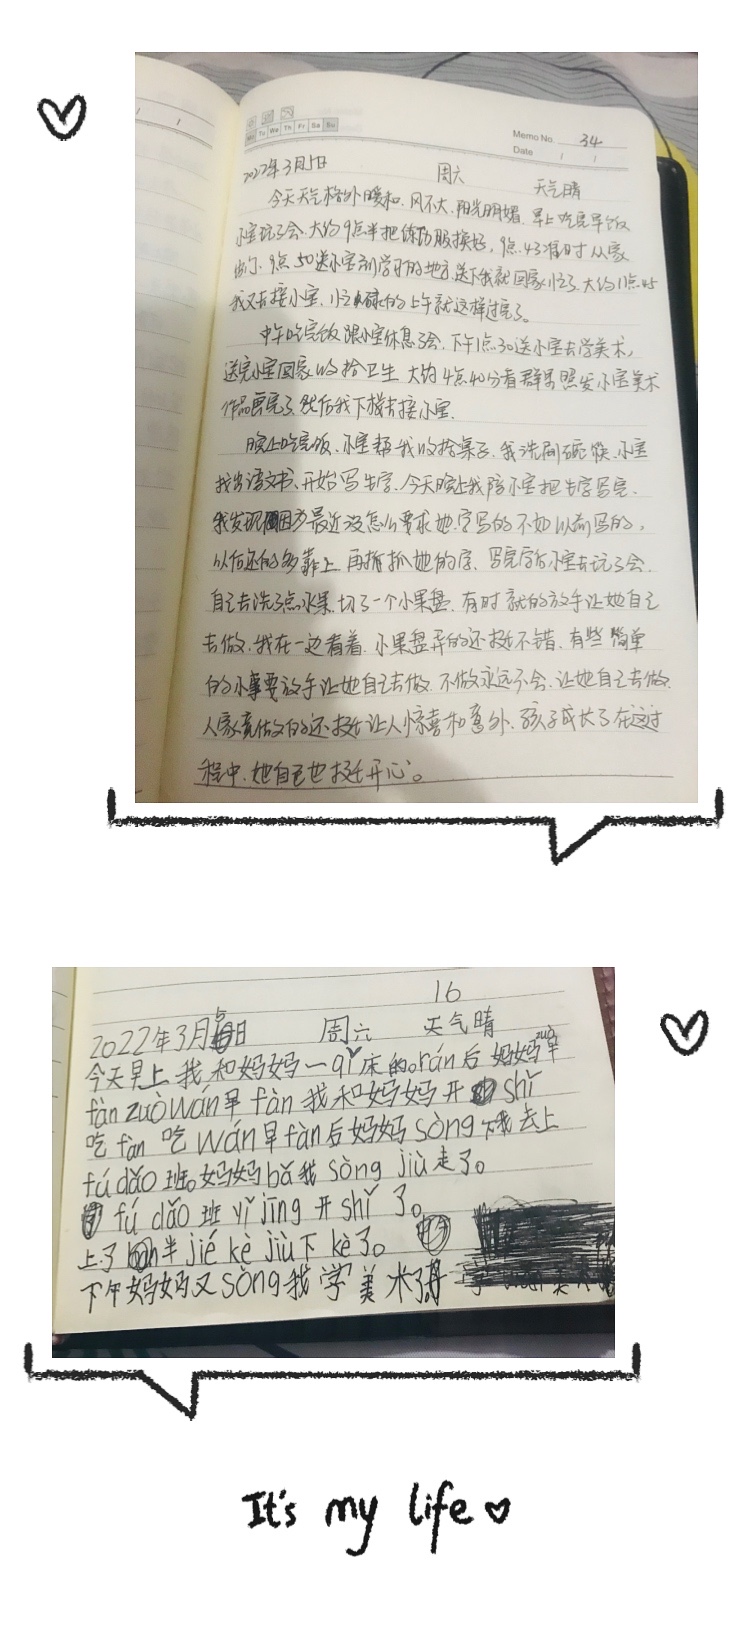 Mo Tu We Th Fr Sa Su
Memo No. 34
Date / /
2022年3月5日 周六 天气晴
今天天气格外暖和、风不大、阳光明媚、早上吃完早饭
小宝玩了会.大约9点半把练功服换好,9点43准时从家
出门、9点50送小宝到学习的地方.送下我就回家忙了.大约11点45
我又去接小宝、忙碌的上午就这样过完了。
中午吃完饭跟小宝休息了会、下午1点30送小宝去学美术,
送完小宝回家收拾卫生 大约4点40分看群里照发小宝美术
作品画完了.然后我下楼去接小宝.
晚上吃完饭、小宝帮我收拾桌子、我洗刷碗筷、小宝
找出语文书、开始写生字、今天晚上我陪小宝把生字写完、
我发现因为最近没怎么要求她.字写的不如以前写的,
以后还的多靠上 再抓抓她的字、写完字后小宝去玩了会.
自己去洗了点水果.切了一个小果盘、有时就的放手让她自己
去做、我在一边看着、小果盘弄的还挺不错、有些简单
的小事要放手让她自己去做、不做永远不会、让她自己去做.
人家竟做的还挺让人惊喜和意外、孩子成长了在这过
程中、她自己也挺开心。
16
2022年3月5日 周六 天气晴
今天早上我和妈妈一qǐ床的。rán后妈妈zuò早
fàn zuò wán早fàn我和妈妈开shǐ
吃fàn吃wán早fàn后妈妈sòng我去上
fú dǎo班。妈妈bǎ我sòng jiù走了。
fú dǎo班yǐ jīng开shǐ了。
上了半jié kè jiù下kè了。
下午妈妈又sòng我学美术了
It's my life